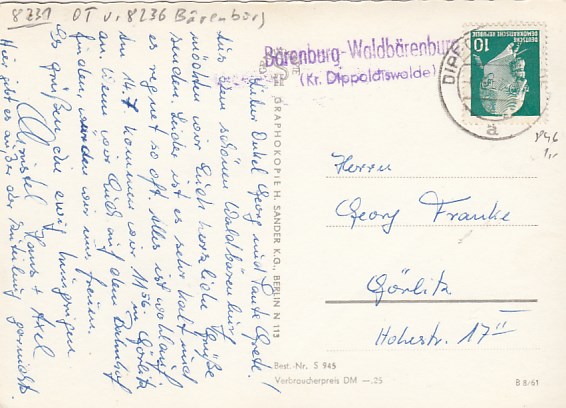 8231 OT v. 8236 Bärenburg
Lieber Onkel Georg und Tante Grete!
Aus dem schönen Waldbärenburg
möchten wir Euch herzliche Grüße
senden. Leider ist es sehr kalt und
es regnet so oft. Alles ist wohlauf.
Am 14.7. kommen wir 11⁵⁶ in Görlitz
an. Wenn wir Euch auf dem Bahnhof
finden, würden wir uns freuen.
Es grüßen die ewig hungrigen
Christel, Hans + Axel
Hier gibt es außer der
Bärenburg-Waldbärenburg
(Kr. Dippoldiswalde)
DIPPOL
a
10
DEUTSCHE
DEMOKRATISCHE REPUBLIK
946
1,-
GRAPHOKOPIE H. SANDER K.G., BERLIN N 113
Herrn
Georg Franke
Görlitz
Hohestr. 17 II
Best.-Nr. S 945
Verbraucherpreis DM —.25
B 8/61